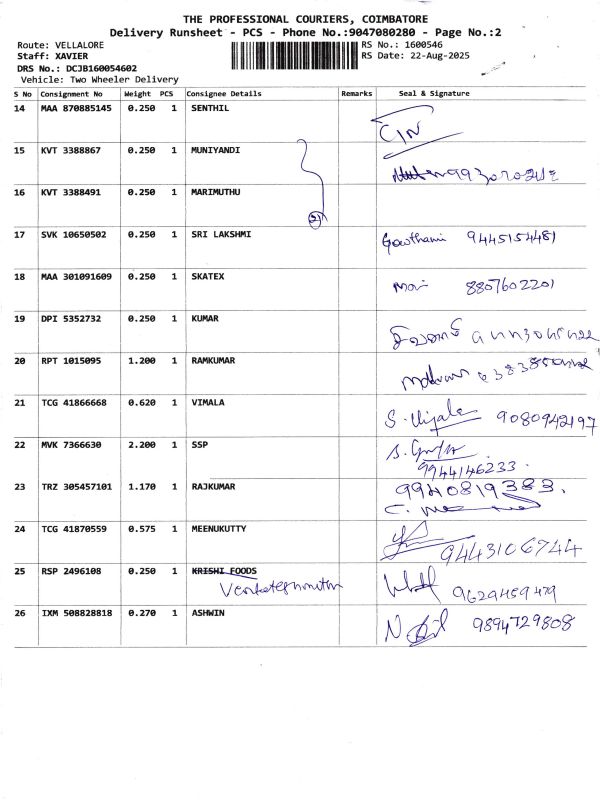 THE PROFESSIONAL COURIERS, COIMBATORE
Delivery Runsheet - PCS - Phone No.:9047080280 - Page No.:2
Route: VELLALORE RS No.: 1600546
Staff: XAVIER RS Date: 22-Aug-2025
DRS No.: DCJB160054602
Vehicle: Two Wheeler Delivery
S No Consignment No Weight PCS Consignee Details Remarks Seal & Signature
14 MAA 870885145 0.250 1 SENTHIL
15 KVT 3388867 0.250 1 MUNIYANDI
16 KVT 3388491 0.250 1 MARIMUTHU
17 SVK 10650502 0.250 1 SRI LAKSHMI Gowthami 9445154481
18 MAA 301091609 0.250 1 SKATEX 8807602201
19 DPI 5352732 0.250 1 KUMAR
20 RPT 1015095 1.200 1 RAMKUMAR
21 TCG 41866668 0.620 1 VIMALA S. Vijala 9080942197
22 MVK 7366630 2.200 1 SSP
9944146233.
23 TRZ 305457101 1.170 1 RAJKUMAR 9940819383.
24 TCG 41870559 0.575 1 MEENUKUTTY 9443106744
25 RSP 2496108 0.250 1 KRISHI FOODS
9629459479
26 IXM 508828818 0.270 1 ASHWIN 9894729808